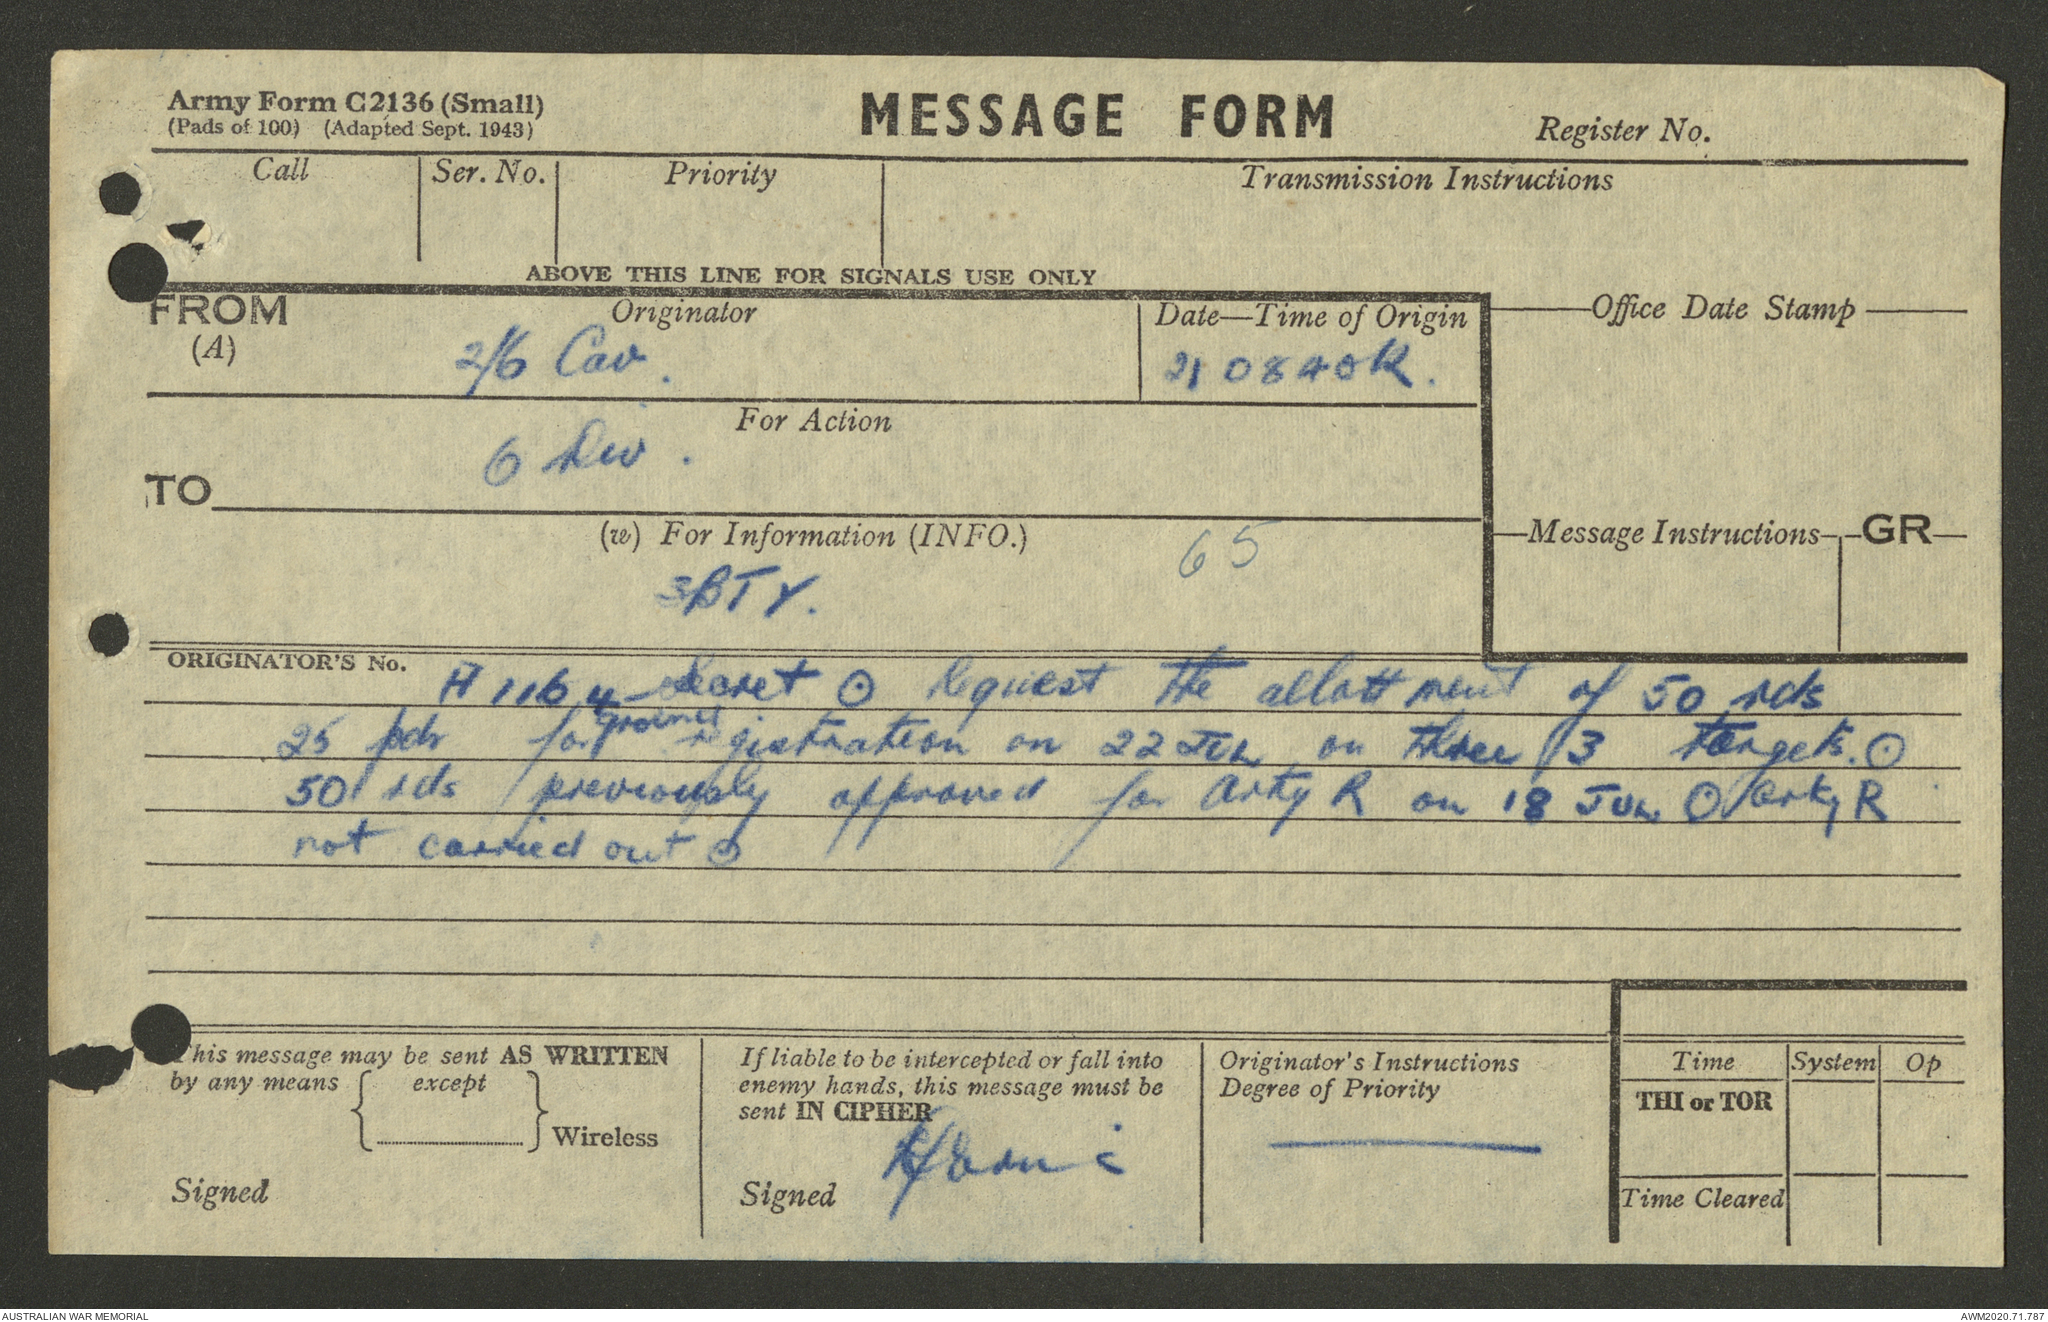 Army Form C2136 (Small)
(Pads of 100) (Adapted Sept. 1943)
MESSAGE FORM
Register No.
Call
Ser. No.
Priority
Transmission Instructions
ABOVE THIS LINE FOR SIGNALS USE ONLY
FROM
(A)
Originator
2/6 Cav.
Date—Time of Origin
210840K.
Office Date Stamp
For Action
6 Div.
TO
(w) For Information (INFO.)
65
3BTY.
Message Instructions
GR
ORIGINATOR'S No.
H 1164 Secret ⊙ Request the allottment of 50 rds
25 pdr for ground registration on 22 Jun on three / 3 targets. ⊙
50 rds previously approved for Arty R on 18 Jun ⊙ Arty R
not carried out ⊙
This message may be sent AS WRITTEN
by any means { except
} Wireless
Signed
If liable to be intercepted or fall into
enemy hands, this message must be
sent IN CIPHER
Signed
Originator's Instructions
Degree of Priority
Time
System
Op
THI or TOR
Time Cleared
AUSTRALIAN WAR MEMORIAL
AWM2020.71.787